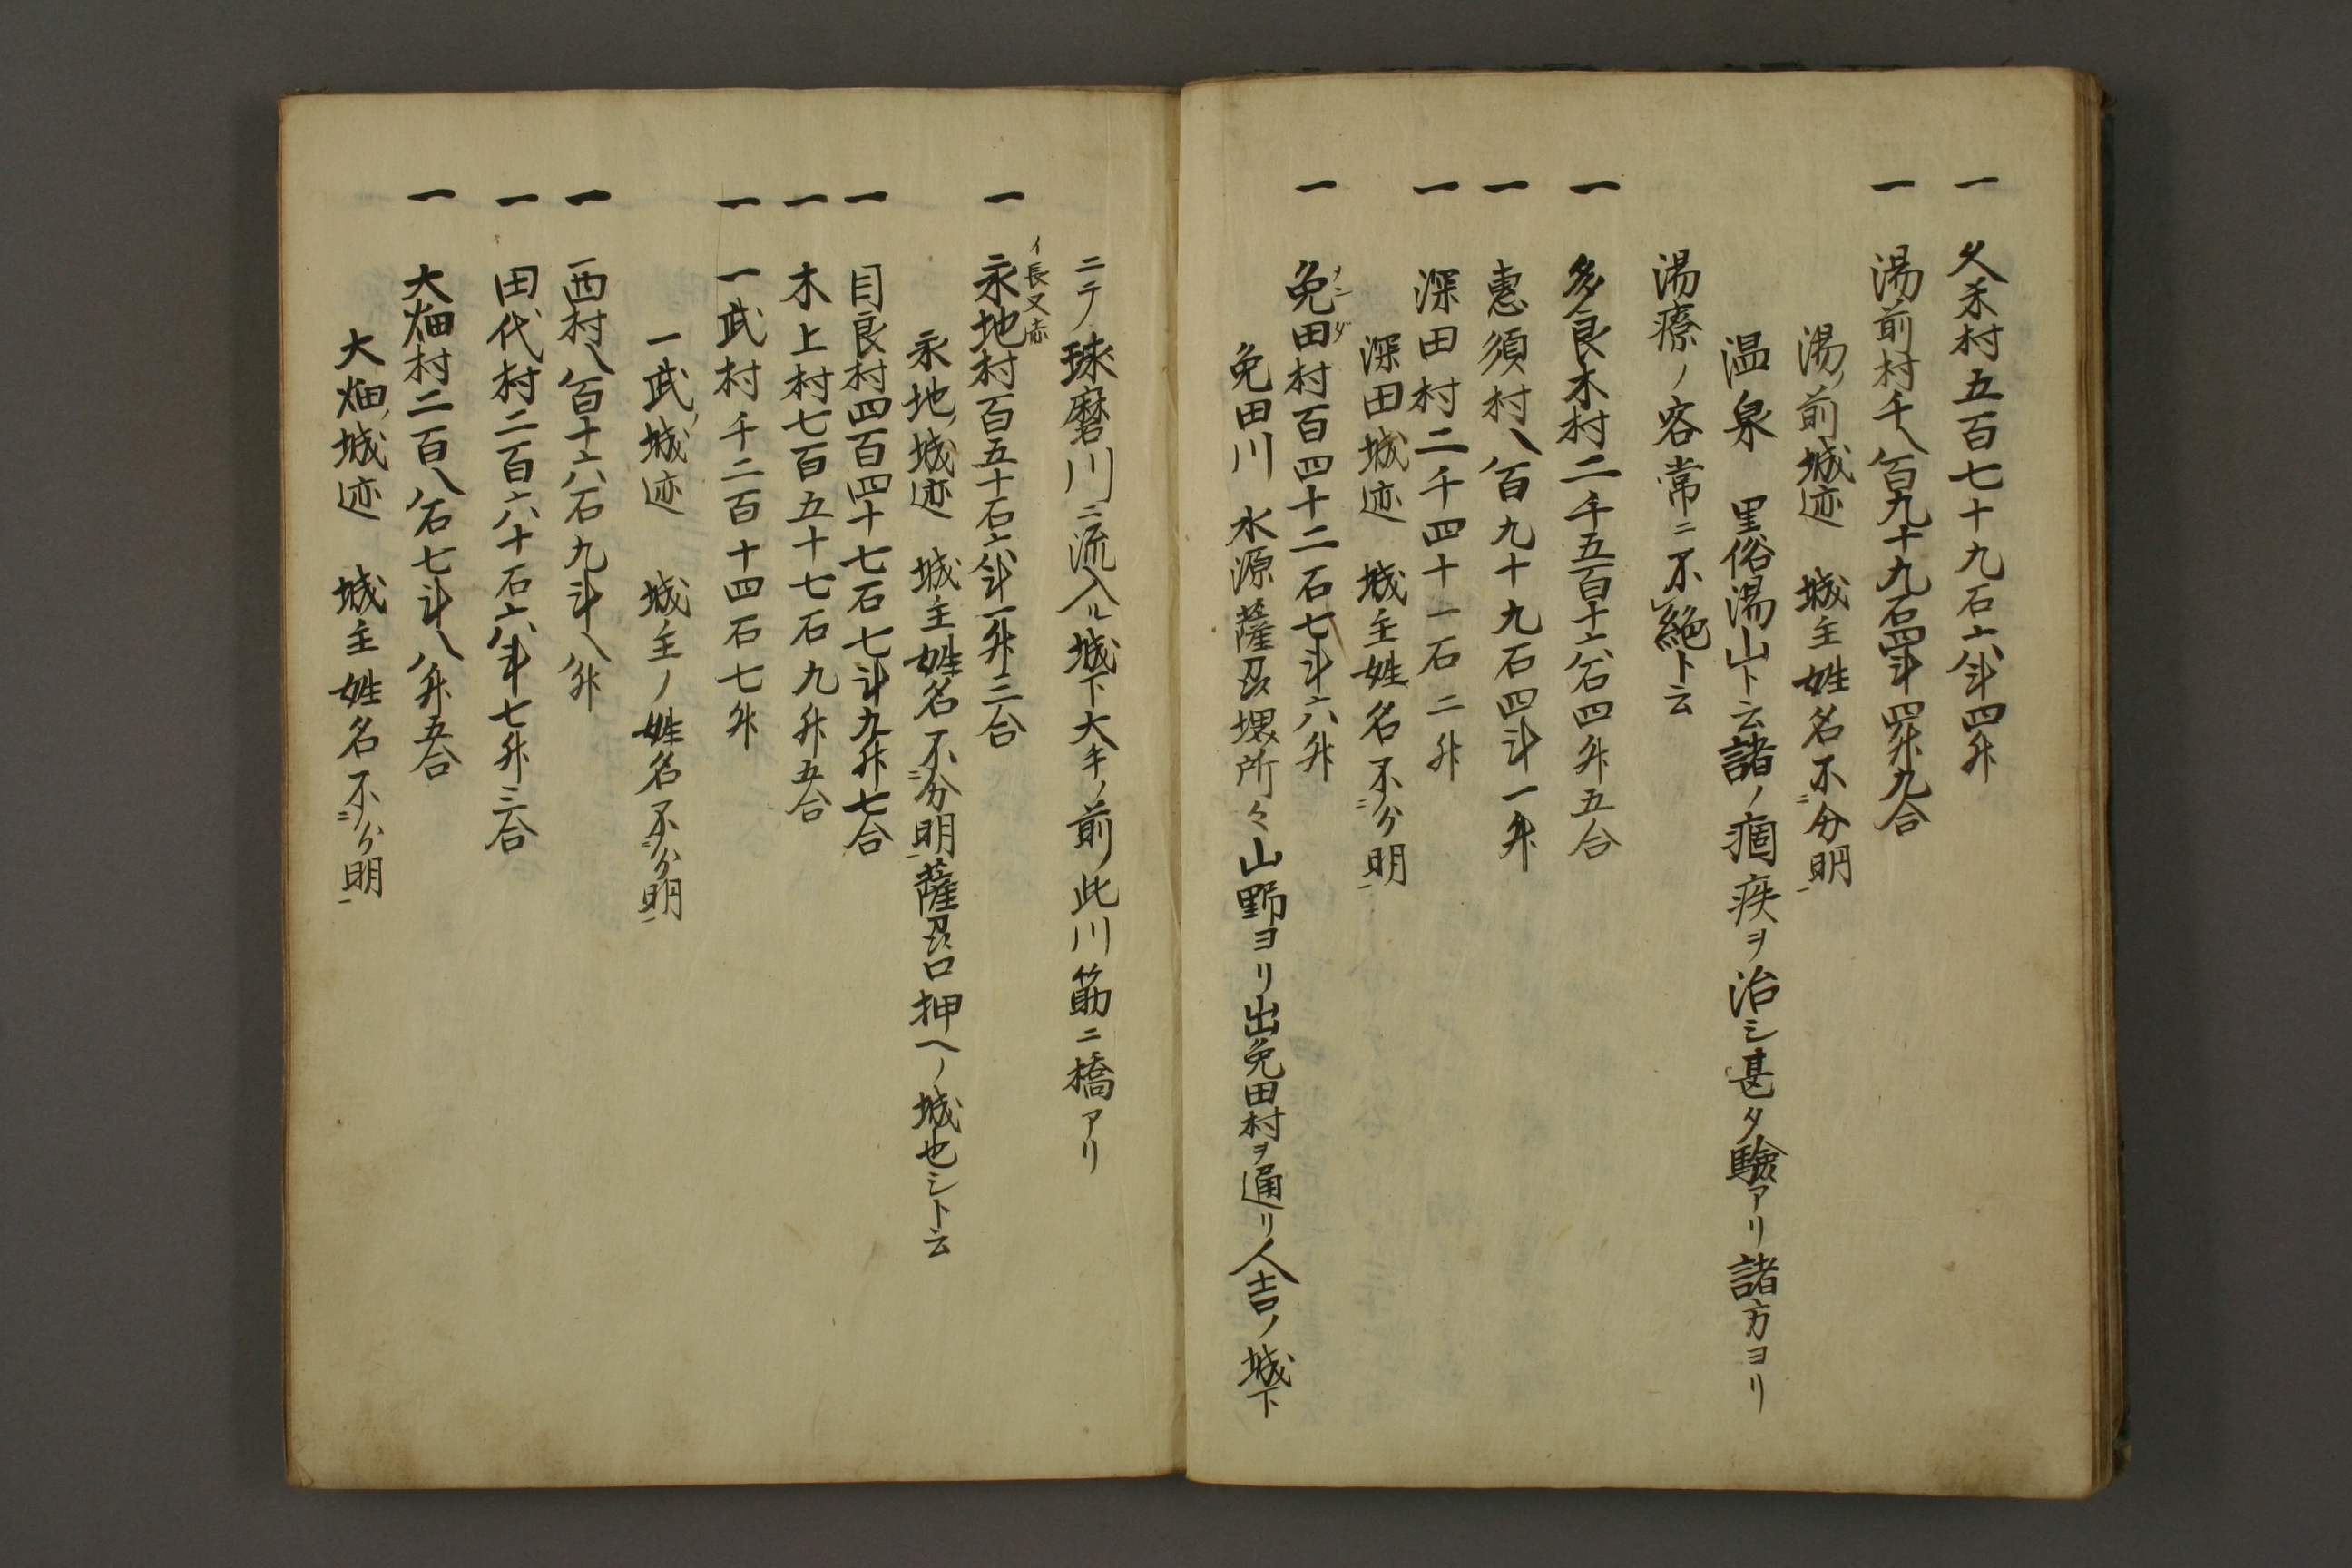 一 久米村五百七十九石六斗四升
一 湯前村千八百九十九石四斗四升九合
湯ノ前城迹 城主姓名不ニ分明一
温泉 里俗湯山ト云諸ノ痼疾ヲ治シ甚タ驗アリ諸方ヨリ
湯療ノ客常ニ不レ絶ト云
一 多良木村二千五百十六石四升五合
一 惠須村八百九十九石四斗一升
一 深田村二千四十一石二升
深田城迹 城主姓名不ニ分明
一 免田村百四十二石七斗六升
メンダ
免田川 水源薩刕堺所々山野ヨリ出免田村ヲ通リ人吉ノ城下
ニテ球磨川ニ流入ル城下大キノ前此川筋ニ橋アリ
イ長又赤
一 永地村百五十石六斗一升二合
永地ノ城迹 城主姓名不ニ分明一薩刕口押ヘノ城也シト云
一 目良村四百四十七石七斗九升七合
一 木上村七百五十七石九升五合
一 一武村千二百十四石七升
一武ノ城迹 城主ノ姓名不ニ分明一
一 西村八百十六石九斗八升
一 田代村二百六十石六斗七升三合
一 大畑村二百八石七斗八升五合
大畑ノ城迹 城主姓名不ニ分明一